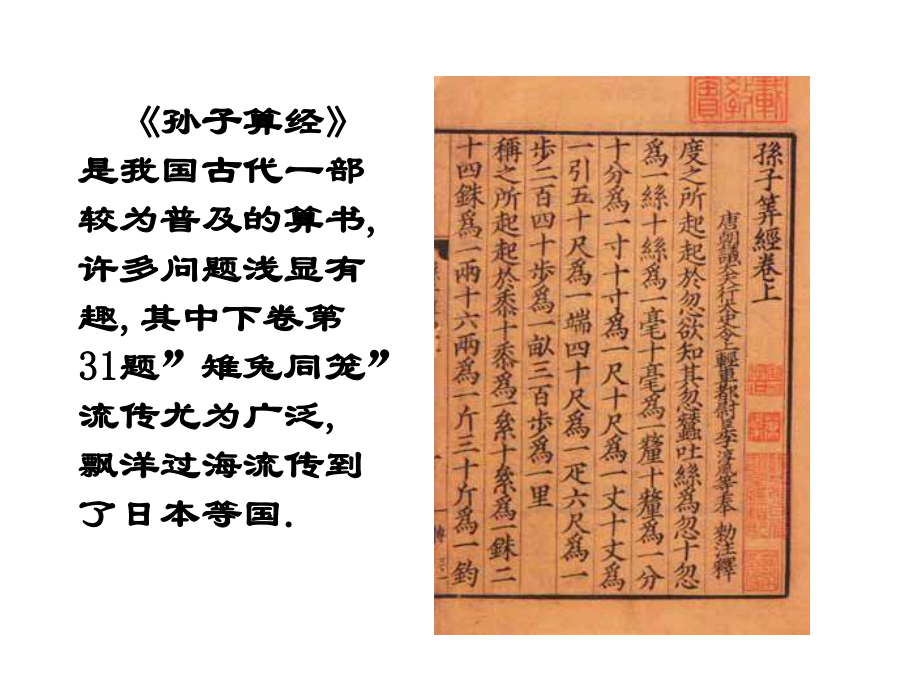 《孙子算经》
是我国古代一部
较为普及的算书,
许多问题浅显有
趣,其中下卷第
31题”雉兔同笼”
流传尤为广泛,
飘洋过海流传到
了日本等国.
孫子筭經卷上
唐朝議大夫行太史令上輕車都尉臣李淳風等奉 勅注釋
度之所起起於忽欲知其忽蠶吐絲爲忽十忽
爲一絲十絲爲一毫十毫爲一釐十釐爲一分
十分爲一寸十寸爲一尺十尺爲一丈十丈爲
一引五十尺爲一端四十尺爲一疋六尺爲一
步二百四十步爲一畝三百步爲一里
稱之所起起於黍十黍爲一絫十絫爲一銖二
十四銖爲一兩十六兩爲一斤三十斤爲一鈞